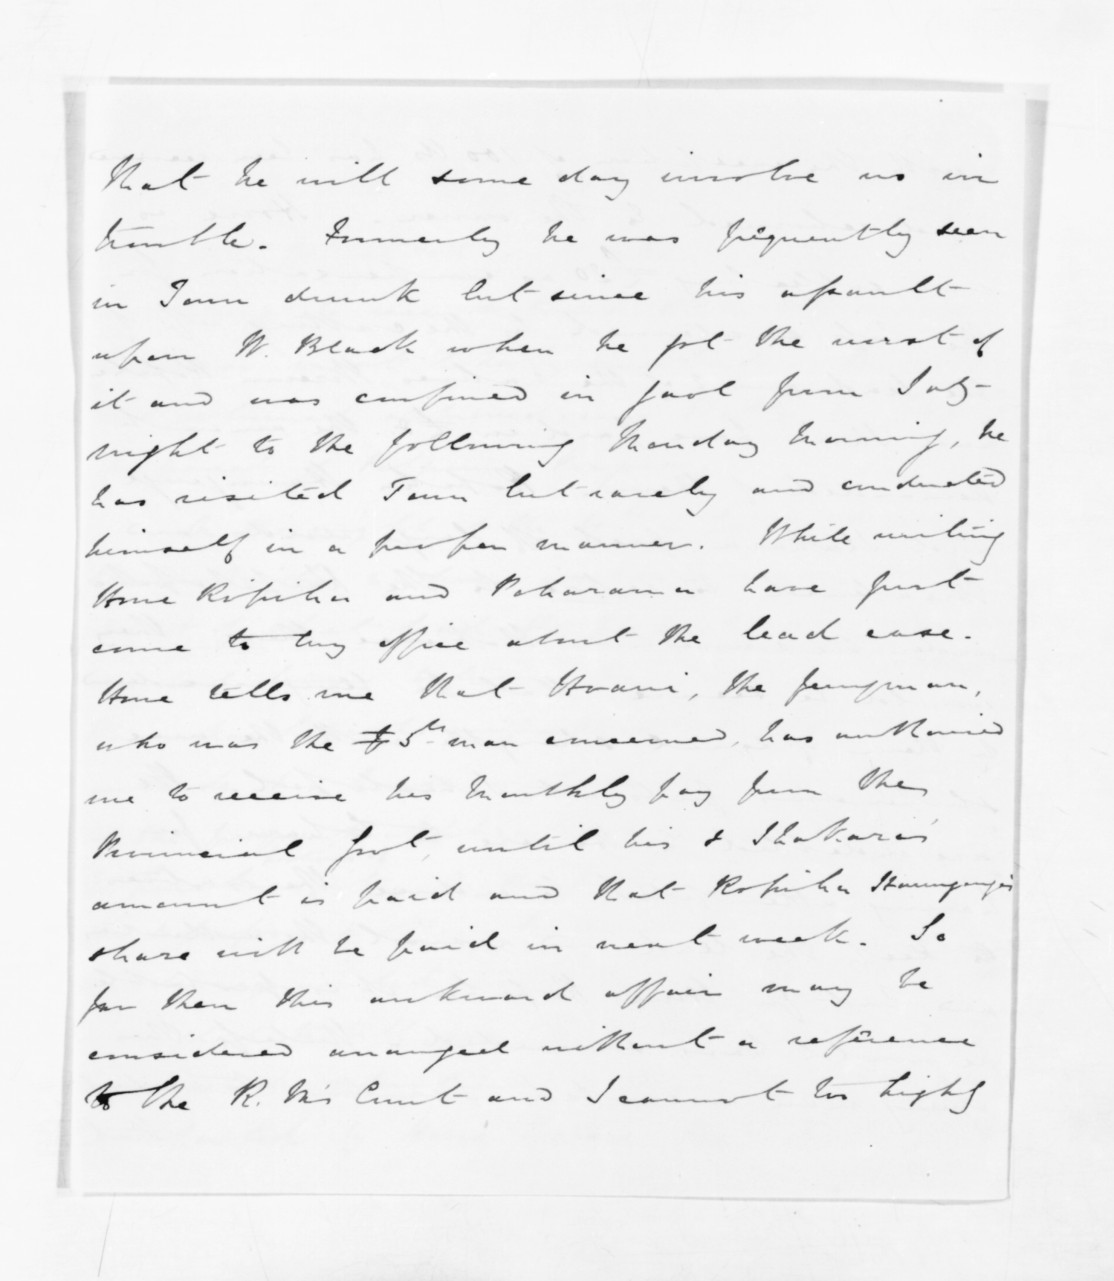 that he will some day involve us in
trouble. Formerly he was frequently seen
in Town drunk but since his assault
upon W. Black when he got the worst of
it and was confined in gaol from Saty
night to the following Monday Morning, he
has visited Town but rarely and conducted
himself in a proper manner. While writing
Hone Ropiha and Poharama have just
come to my office about the lead case.
Hone tells me that Hoani, the ferryman,
who was the 5th man concerned, has authorised
me to receive his Monthly pay from the
Provincial Govt, until his & Ihakara's
amount is paid and that Ropiha
share will be paid in next week. So
far then this awkward affair may be
considered arranged without a reference
to the R. M's Court and I cannot too highly